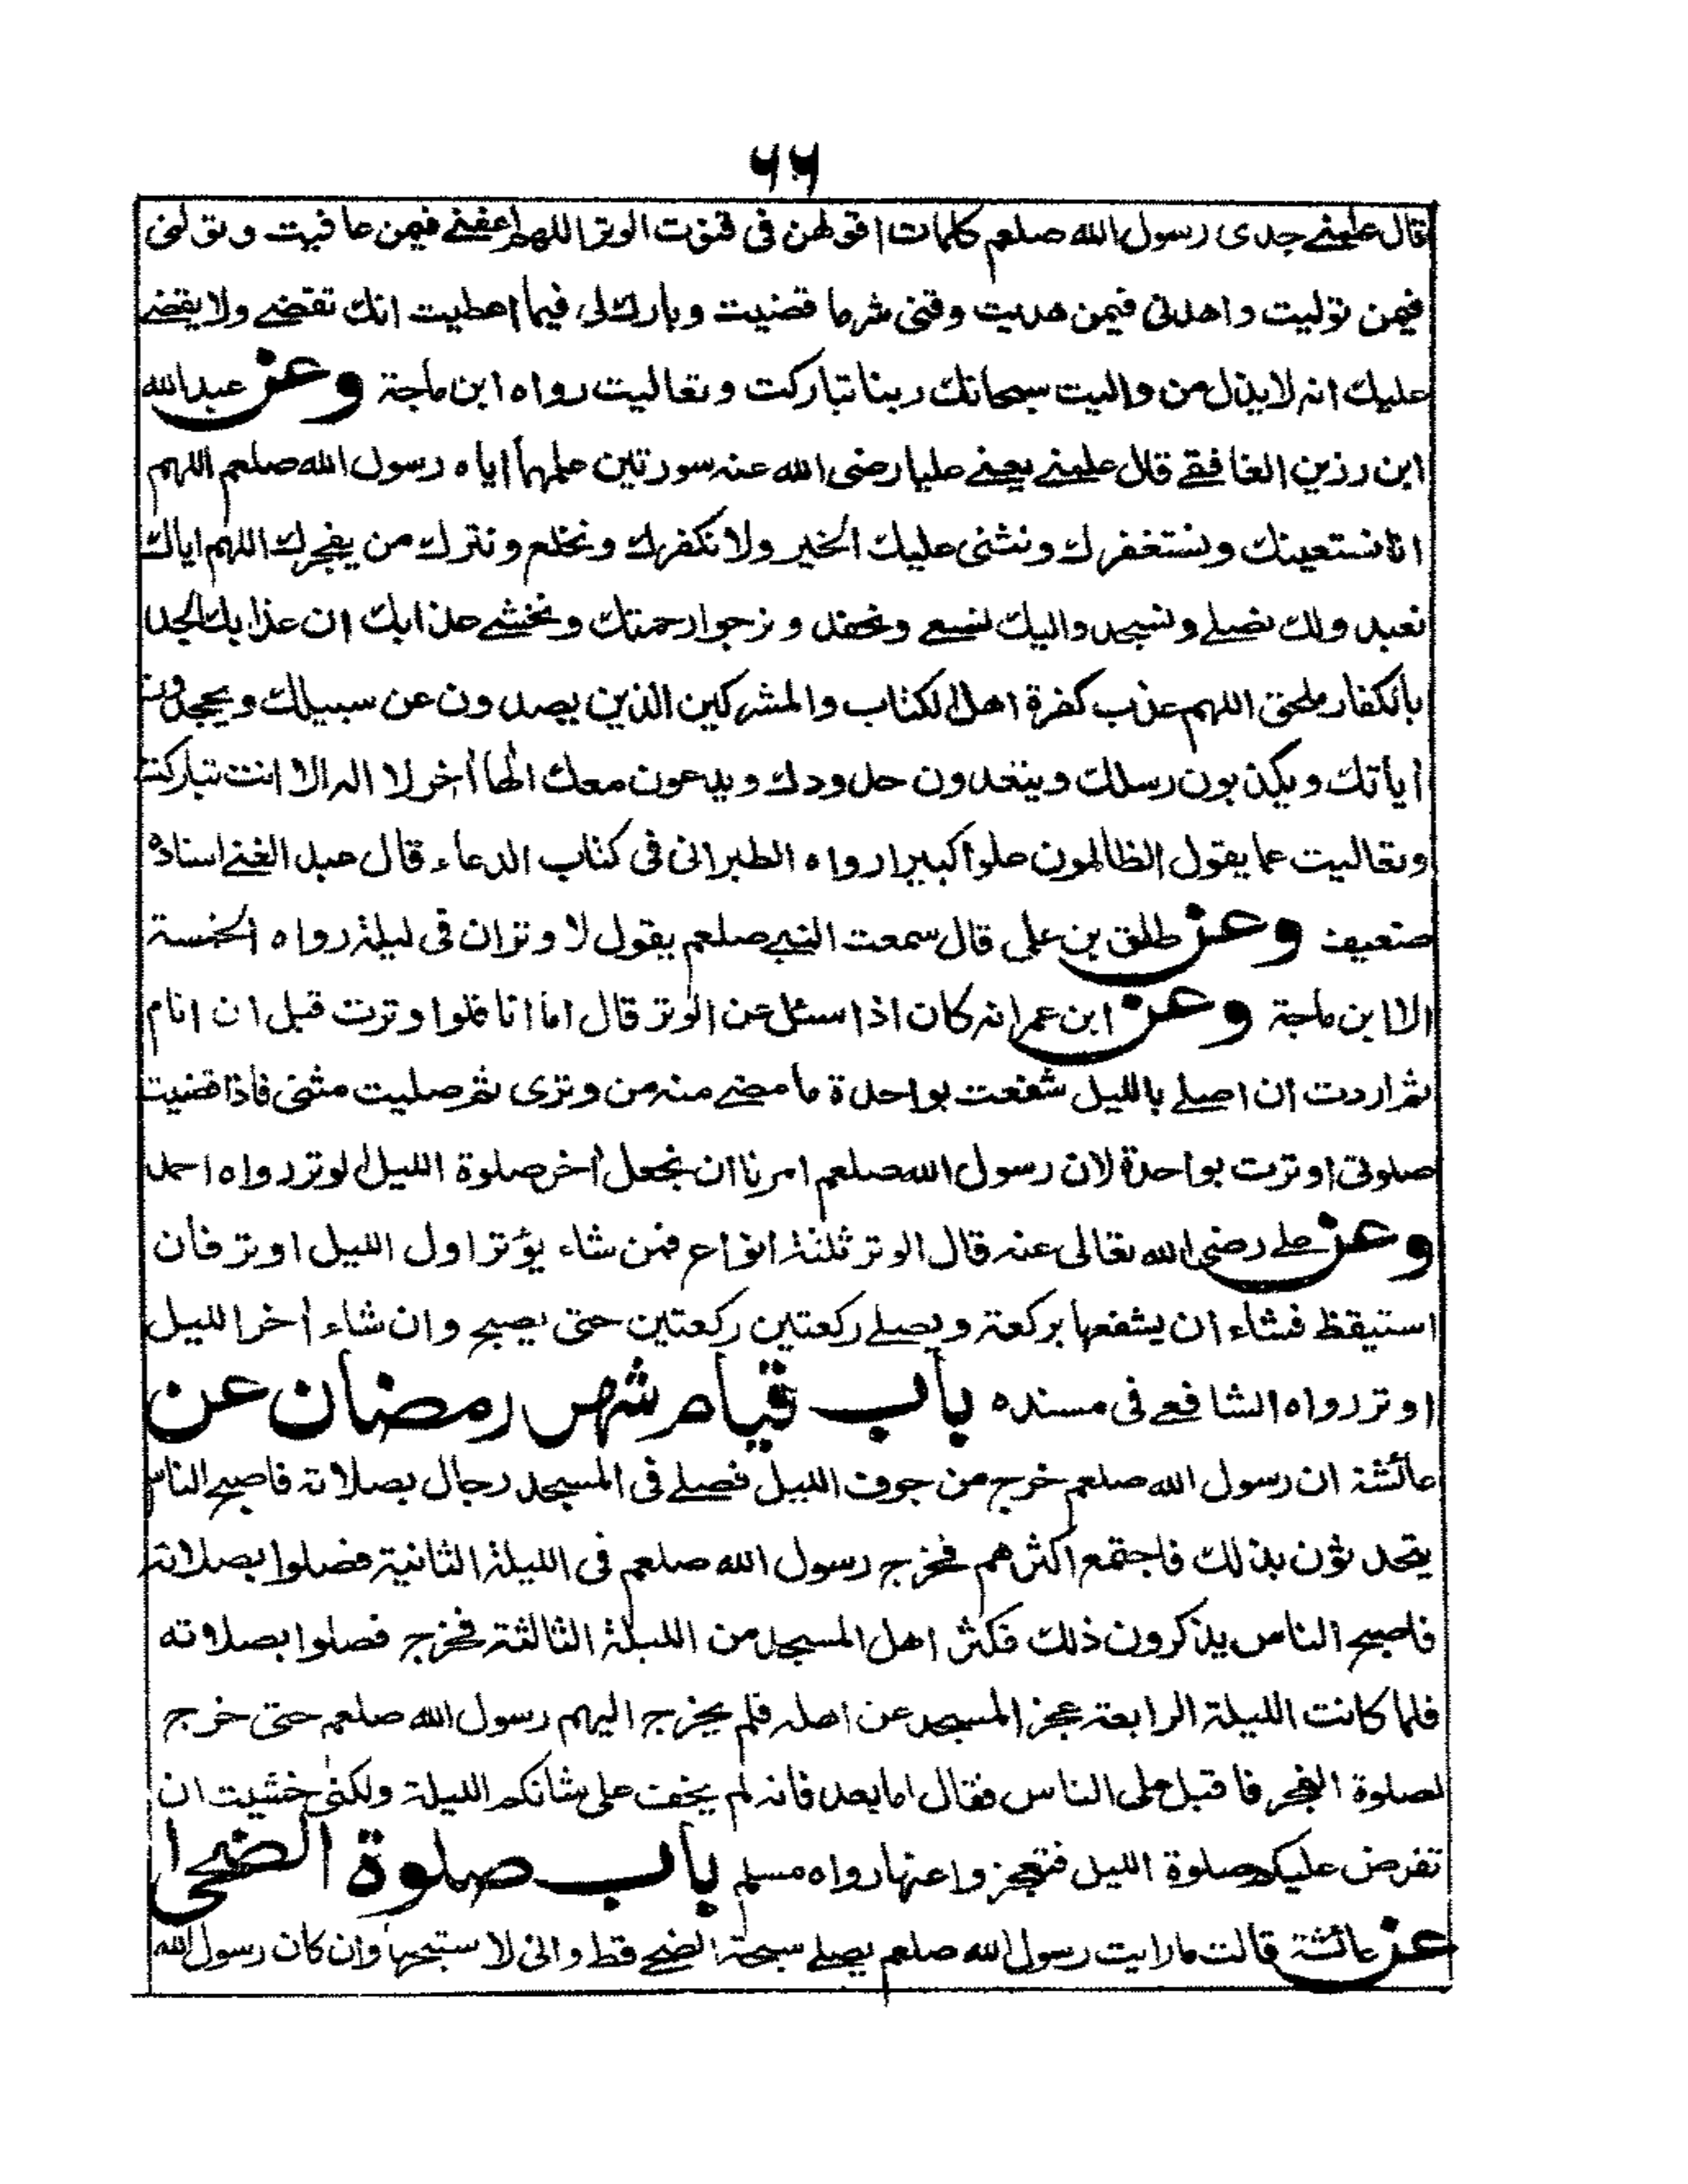 ٦٦
قال علمنے جدی رسول الله صلعم كلمات اقولهن فی قنوت الوتر اللهم اعفنے فیمن عافیت و تولنی
فیمن تولیت و اهدنی فیمن هدیت وقنی شر ما قضیت وبارك لی فیما اعطیت انك تقضے ولا یقضے
علیك انه لا یذل من والیت سبحانك ربنا تباركت وتعالیت رواه ابن ماجة وعن عبدالله
ابن رزین الغافقے قال علمنے یعنے علیا رضی الله عنه سورتین علمهما ایاه رسول الله صلعم اللهم
انا نستعینك ونستغفرك ونثنی علیك الخیر ولا نكفرك ونخلع ونترك من یفجرك اللهم ایاك
نعبد ولك نصلے ونسجد والیك نسعے ونحفد ونرجوا رحمتك ونخشے عذابك ان عذابك الجد
بالكفار ملحق اللهم عذب كفرة اهل الكتاب والمشركین الذین یصدون عن سبیلك ویجحدون
ایاتك ویكذبون رسلك ویتعدون حدودك ویدعون معك الها أخر لا اله الا انت تباركت
وتعالیت عما یقول الظالمون علوا كبیرا رواه الطبرانی فی كتاب الدعاء قال عبد الغنے اسناده
ضعیف وعن طلق بن علی قال سمعت النبے صلعم یقول لا وتران فی لیلة رواه الخمسة
الا ابن ماجة وعن ابن عمر انه كان اذا سئل عن الوتر قال اما انا فلو اوترت قبل ان انام
ثم اردت ان اصلے باللیل شفعت بواحدة ما مضے منه من وتری ثم صلیت مثنی فاذا قضیت
صلوتی اوترت بواحدة لان رسول الله صلعم امرنا ان نجعل أخر صلوة اللیل الوتر رواه احمد
وعن علے رضی الله تعالی عنه قال الوتر ثلثة انواع فمن شاء یؤتر اول اللیل اوتر فأن
استیقظ فشاء ان یشفعها بركعة ویصلے ركعتین ركعتین حتی یصبح وان شاء أخر اللیل
اوتر رواه الشافعے فی مسنده باب قیام شهر رمضان عن
عائشة ان رسول الله صلعم خرج من جوف اللیل فصلے فی المسجد رجال بصلاته فاصبح الناس
یتحدثون بذلك فاجتمع اكثرهم فخرج رسول الله صلعم فی اللیلة الثانیة فصلوا بصلاته
فاصبح الناس یذكرون ذلك فكثر اهل المسجد من اللیلة الثالثة فخرج فصلوا بصلاته
فلما كانت اللیلة الرابعة عجز المسجد عن اهله فلم یخرج الیهم رسول الله صلعم حتی خرج
لصلوة الفجر فاقبل علی الناس فقال اما بعد فانه لم یخف علی شانكم اللیلة ولكنی خشیت ان
تفرض علیكم صلوة اللیل فتعجزوا عنها رواه مسلم باب صلوة الضحی
عن عائشة قالت ما رایت رسول الله صلعم یصلے سبحة الضحے قط وانی لا ستبحها وان كان رسول الله